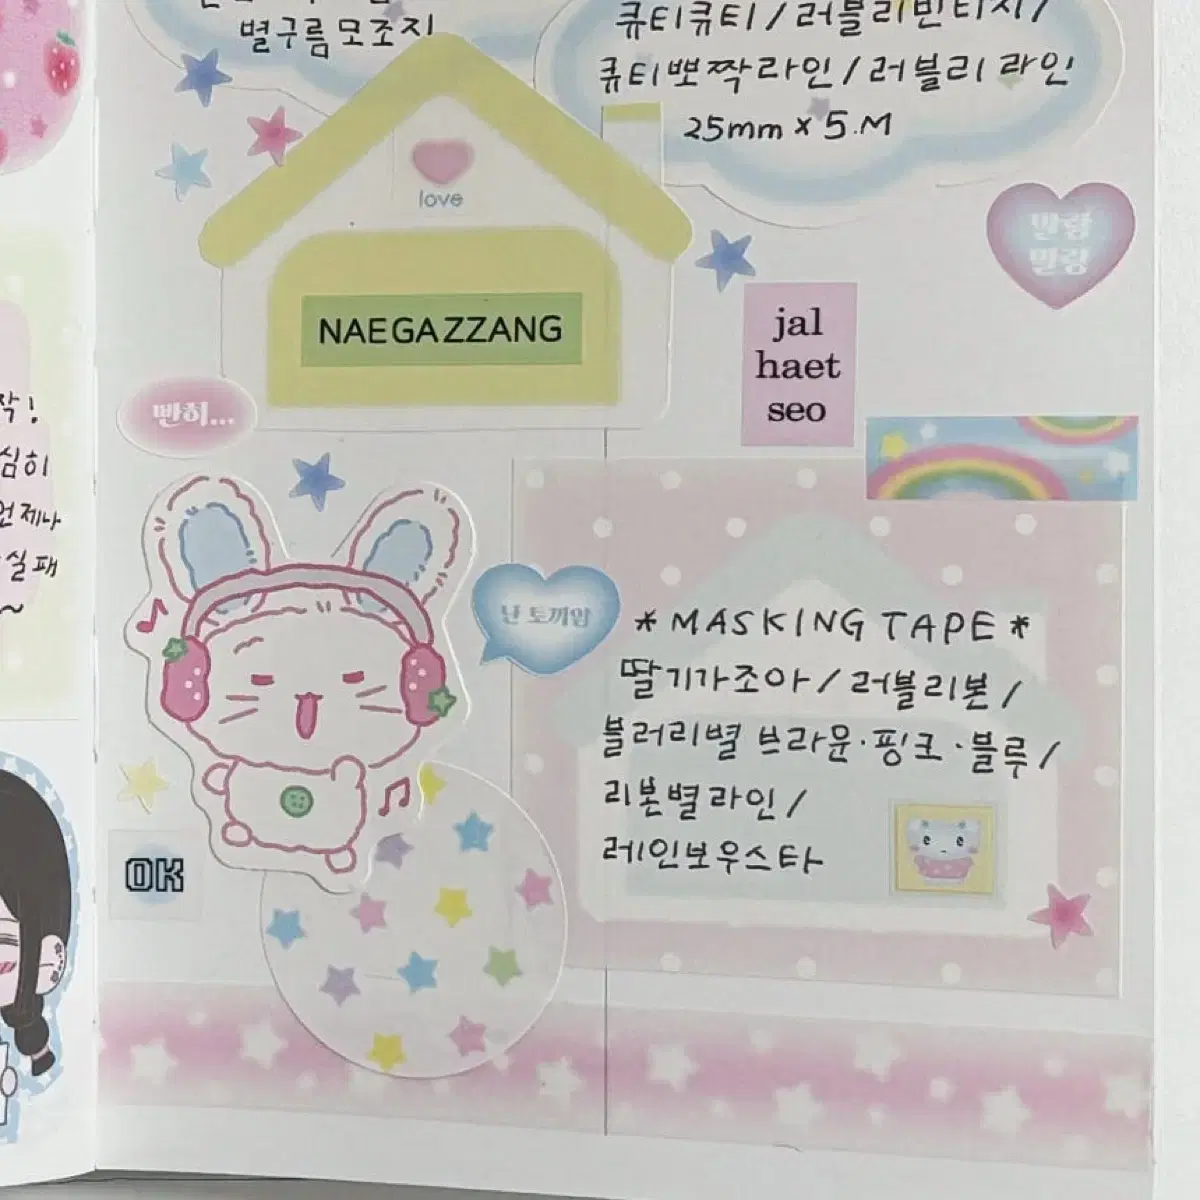 별구름모조지
큐티큐티/러블리빈티지/
큐티뽀짝라인/러블리라인
25mm x 5.M
love
NAEGAZZANG
말랑
말랑
jal
haet
seo
빤히...
심히
언제나
실패
~
난 토끼얌
* MASKING TAPE *
딸기가조아/러블리본/
블러리별 브라운·핑크·블루/
리본별라인/
레인보우스타
OK